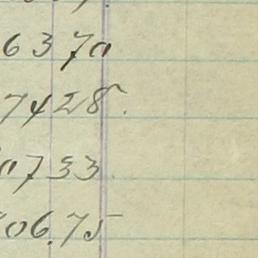 6370
7428.
0733
06.75